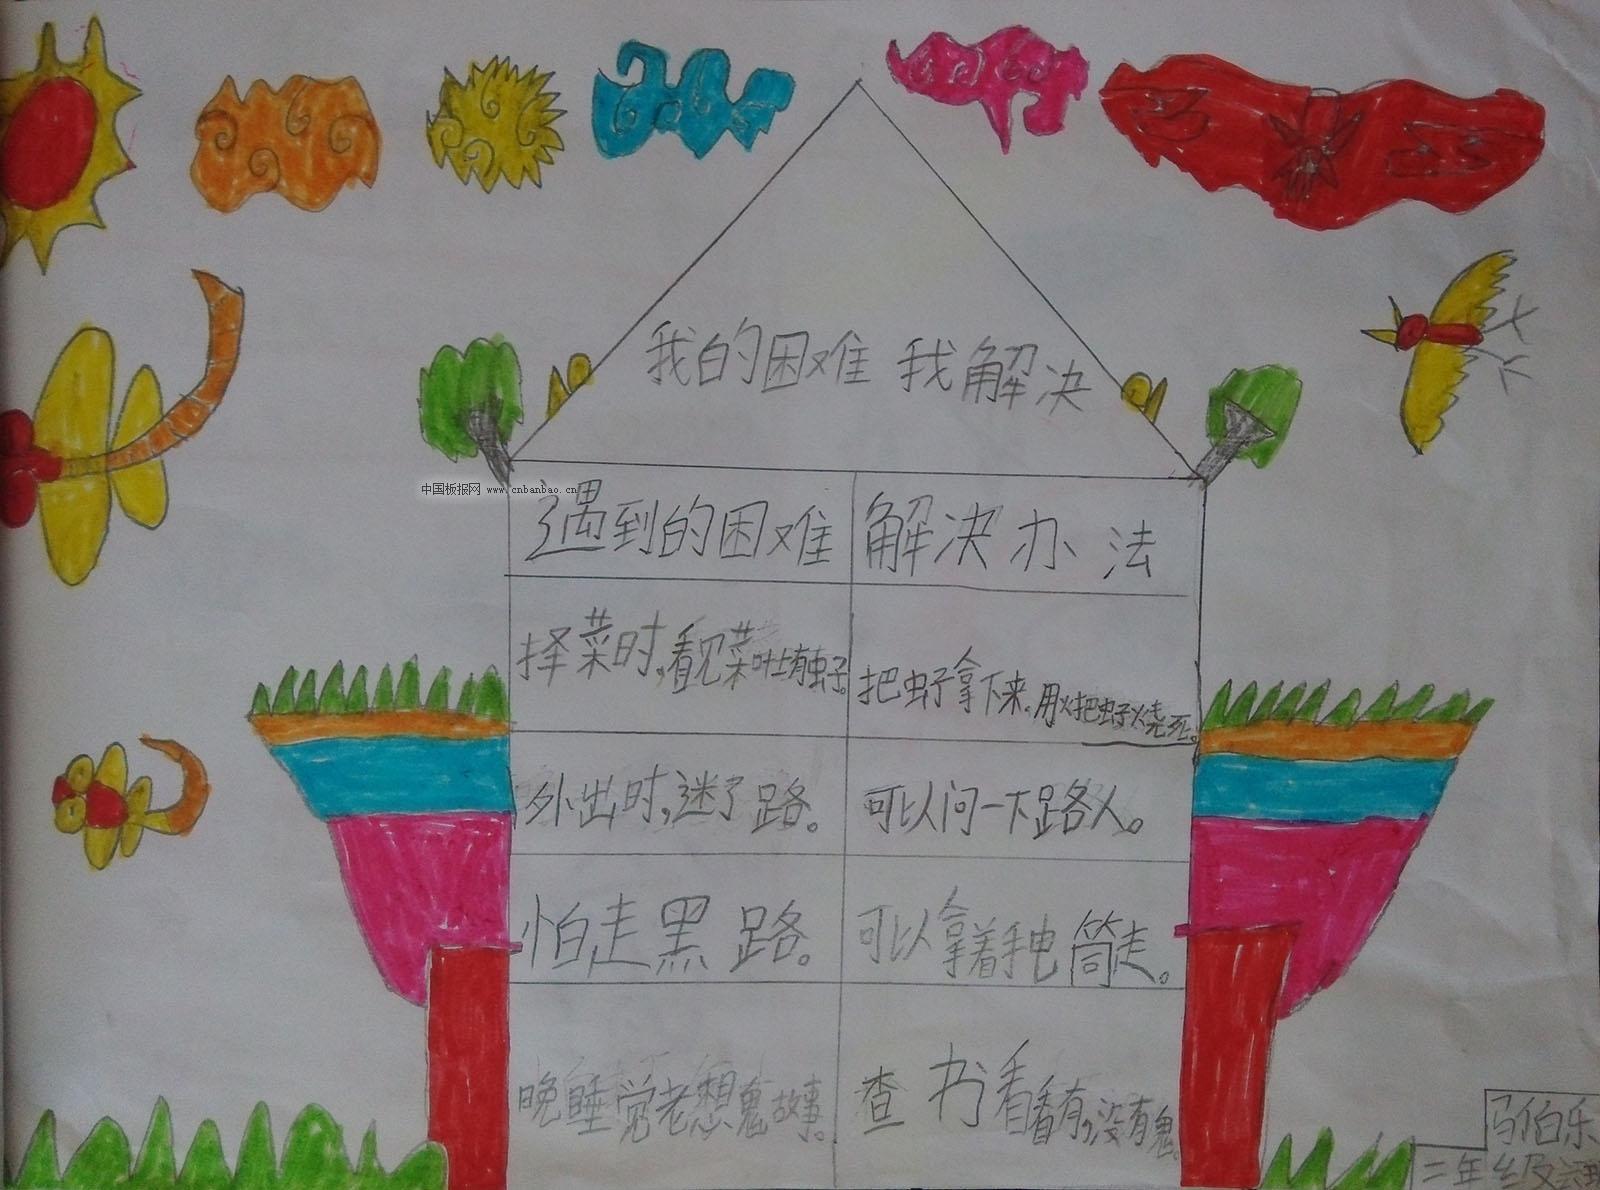 我的困难 我解决
中国板报网 www.cnbanbao.cn
遇到的困难
解决办法
择菜时,看见菜叶上有虫子。
把虫子拿下来,用火把虫子烧死。
外出时,迷了路。
可以问一下路人。
怕走黑路。
可以拿着手电筒走。
晚睡觉老想鬼故事。
查书看看有没有鬼。
马伯乐
二年级